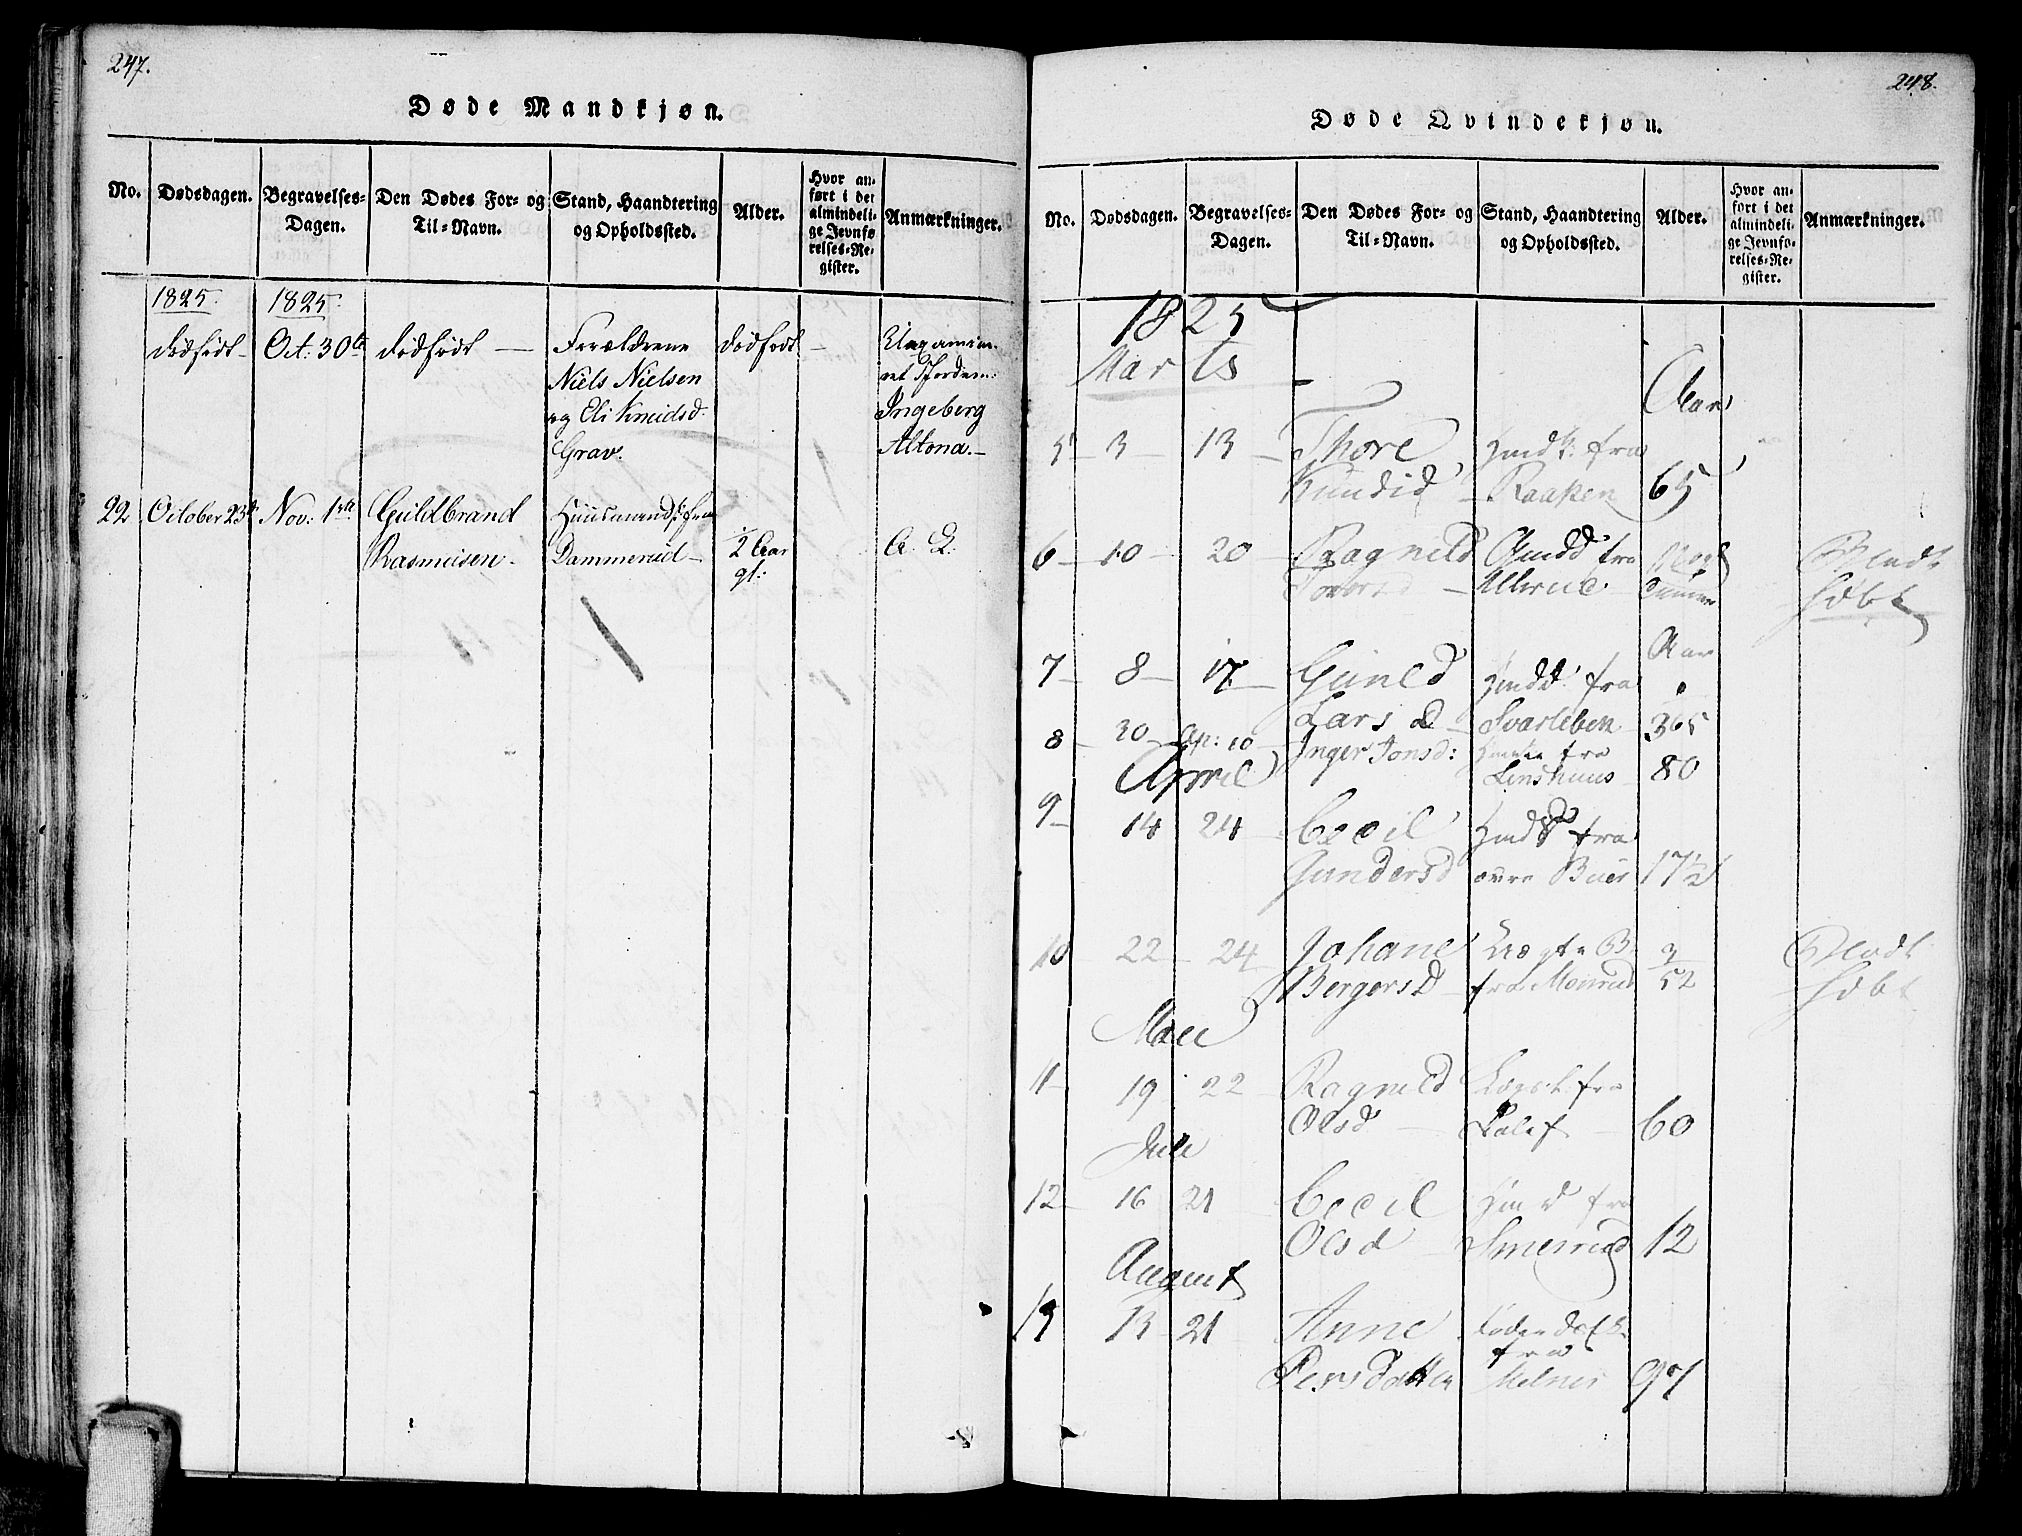 247.
Døde Mandkjøn.
No. Dødsdagen. Begravelses-Dagen. Den Dødes For- og Til-Navn. Stand, Haandtering og Opholdssted. Alder. Hvor anført i det almindelige Jevnførelses-Register. Anmærkninger.
1825. 1825.
dødfødt Oct: 30te dødfødt Forældrene dødfødt
Niels Nielsen
og Eli Knudsd. Ingeberg
Grav. Altona.
22 October 23de Nov: 1ste Guldbrand Huusmands: fra
Rasmusen. Dammerud 2 Aar A. L.
gl:
248.
Døde Qvindekjøn.
No. Dødsdagen. Begravelses-Dagen. Den Dødes For- og Til-Navn. Stand, Haandtering og Opholdssted. Alder. Hvor anført i det almindelige Jevnførelses-Register. Anmærkninger.
1825
Marts
Aar
5 3 13 Thore Hmdk: fra
Raaken 65
6 10 20 Ragnild Gmdd fra
Ullerud
Aar
7 8 17 Guneld Hmdd fra
Lars D Svarleben 36
8 30 Ap: 10 Inger Jonsd: fra
April Linshuus 80
9 14 24 Cecil Hmdd fra
Gundersd øvre Buer 17 1/2
10 22 24 Johane Uægte B.
Bergersd fra Monrud 3/52
Mai
11 19 22 Ragnild Lægsl. fra
Olsd 60
Juli
12 16 21 Cecil Hmd fra
Olsd Smerrud 12
August
13 13 21 Anne
fra
Persdatter Melnes 97